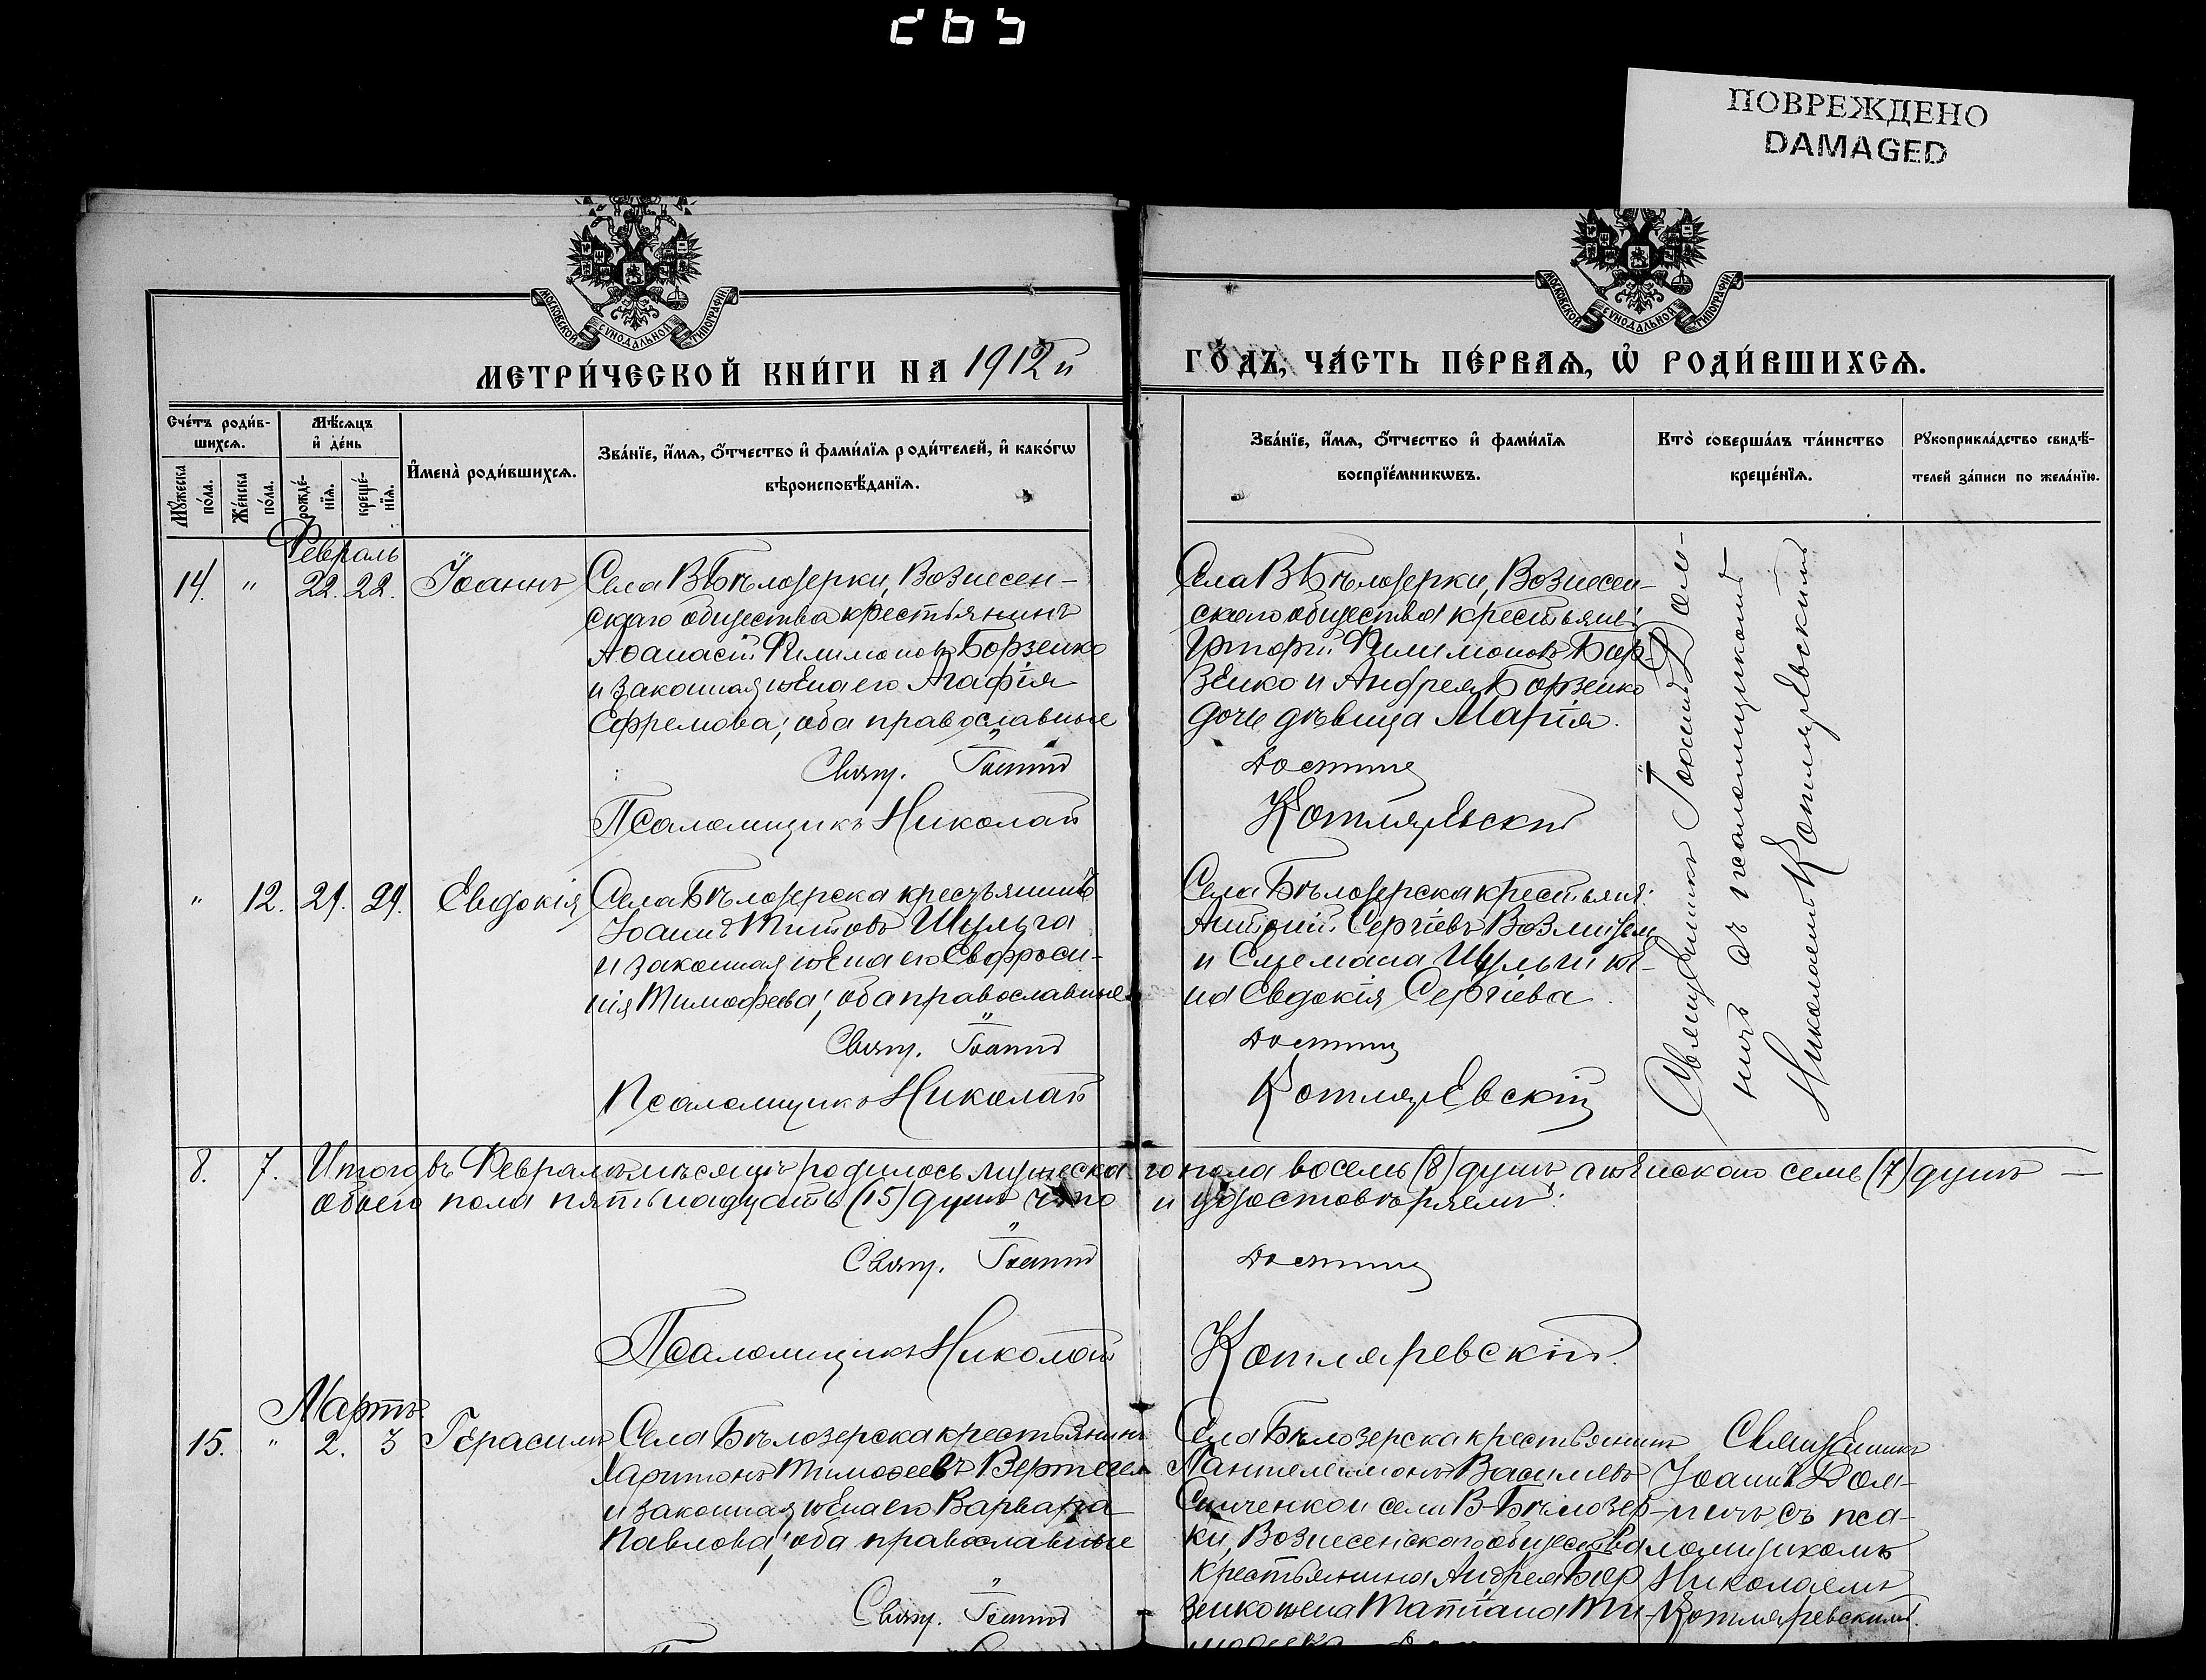 ПОВРЕЖДЕНО
DAMAGED
МОСКОВСКОЙ СѴНОДАЛЬНОЙ ТИПОГРАФІИ
МОСКОВСКОЙ СѴНОДАЛЬНОЙ ТИПОГРАФІИ
МЕТРИ́ЧЕСКОЙ КНИ́ГИ НА 1912й
ГО́ДЪ, ЧА́СТЬ ПЕ́РВАѦ, Ѡ҆ РОДИ́ВШИХСѦ.
Сче́тъ роди́в-
шихсѧ.
Мꙋ́жеска по́ла.
Же́нска по́ла.
Мѣ́сѧцъ
и҆ де́нь
рожде́-
нїѧ.
креще́-
нїѧ.
И҆мена̀ роди́вшихсѧ.
Зва́нїе, и҆́мѧ, ѻ҆́тчество и҆ фами́лїѧ роди́телей, и҆ како́гѡ
вѣроисповѣ́данїѧ.
Зва́нїе, и҆́мѧ, ѻ҆́тчество и҆ фами́лїѧ
воспрїе́мникѡвъ.
Кто̀ соверша́лъ та́инство
креще́нїѧ.
Рꙋкоприкла́дство свидѣ́-
телей за́писи по жела́нїю.
Февраль
14. " 22. 22. Іоаннъ
Села В Бѣлозерки, Вознесен-
скаго общества крестьянинъ
Аѳанасій Филимоновъ Борзенко
и законная жена его Агафія
Ефремова; оба православные
Свящ. Іоаннъ
Псаломщикъ Николай
Села В Бѣлозерки, Вознесен-
скаго общества крестьяне:
Григорій Филимоновъ Бор-
зенко и Андрея Борзенко
дочь дѣвица Марія.
Котляревскій
Священникъ Іоаннъ Дом-
ничъ съ псаломщикомъ
Николаемъ Котляревскимъ
" 12. 21. 29. Евдокія
Села Бѣлозерска крестьянинъ
Іоаннъ Титовъ Шульга
и законная жена его Евфроси-
нія Тимофеева; оба православные
Свящ. Іоаннъ
Псаломщикъ Николай
Села Бѣлозерска крестьяне:
Антоній Сергіевъ
и Шульги же-
на Евдокія Сергіева
Котляревскій
8. 7. Итого въ Февралѣ мѣсяцѣ родилось мужеска го пола восемь (8) душъ, а женскаго семь (7) душъ —
обоего пола пятьнадцать (15) душъ что и удостовѣряемъ:
Свящ. Іоаннъ
Псаломщикъ Николай
Котляревскій.
Мартъ
15. " 2. 3 Герасимъ
Села Бѣлозерска крестьянинъ
Харитонъ Тимоѳеевъ
и законная жена его Варвара
Павлова; оба православные
Свящ. Іоаннъ
Села Бѣлозерска крестьянинъ
Пантелеимонъ Василіевъ
и села В-Бѣлозер-
ки, Вознесенскаго общества
крестьянина Андрея Бор
зенко жена Татіана Ти-
Священникъ
Іоаннъ Дом-
ничъ съ пса-
ломщикомъ
Николаемъ
Котляревскимъ.